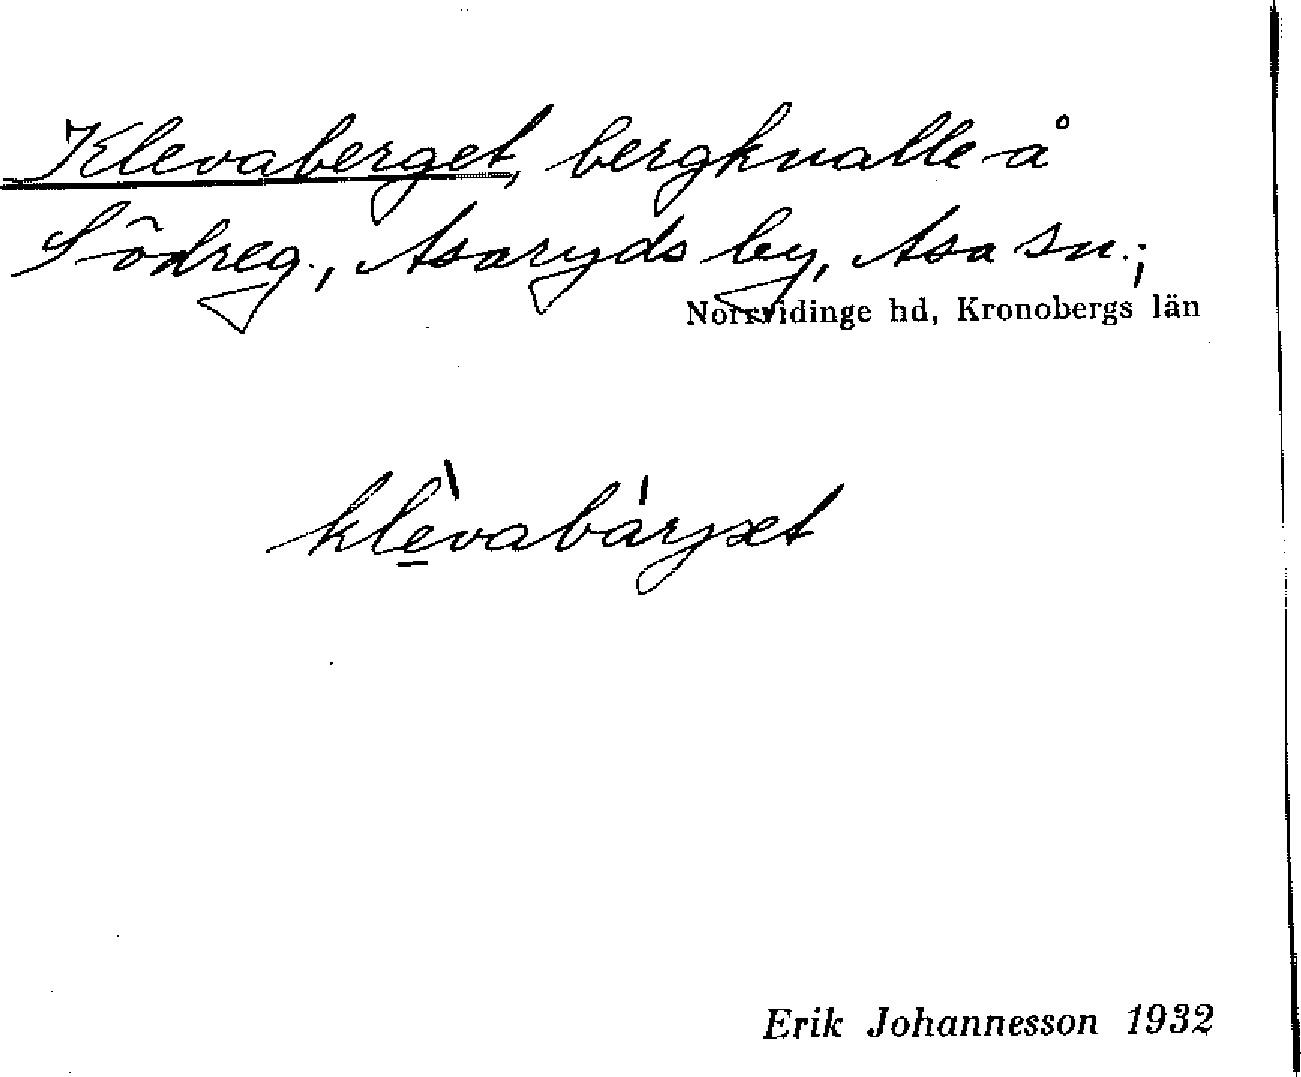 Klevaberget, bergknalle å
Södreg., Asaryds by, Asa sn.;
Norrvidinge hd, Kronobergs län
klèvabár̡et
Erik Johannesson 1932